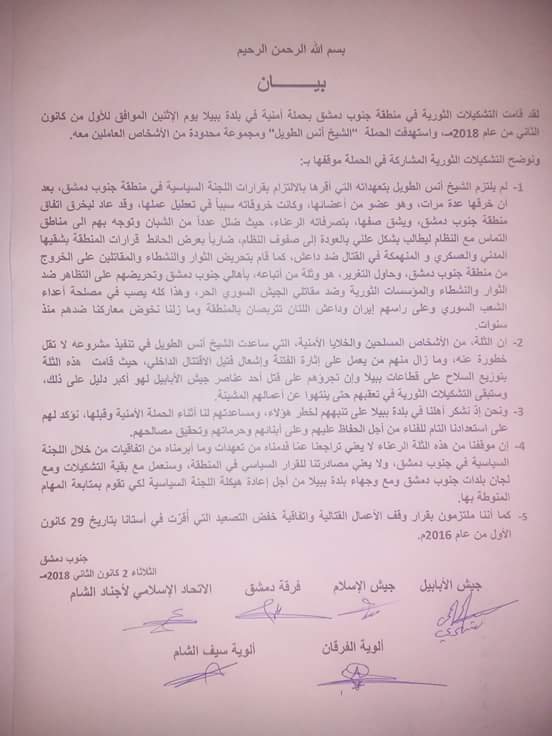 بسم الله الرحمن الرحيم
بيـــــــان
لقد قامت التشكيلات الثورية في منطقة جنوب دمشق بحملة أمنية في بلدة ببيلا يوم الإثنين الموافق للأول من كانون
الثاني من عام 2018مـ، واستهدفت الحملة "الشيخ أنس الطويل" ومجموعة محدودة من الأشخاص العاملين معه.
ونوضح التشكيلات الثورية المشاركة في الحملة موقفها بـ:
1- لم يلتزم الشيخ أنس الطويل بتعهداته التي أقرها بالالتزام بقرارات اللجنة السياسية في منطقة جنوب دمشق، بعد
أن خرقها عدة مرات، وهو عضو من أعضائها، وكانت خروقاته سبباً في تعطيل عملها، وقد عاد ليخرق اتفاق
منطقة جنوب دمشق، ويشق صفها، بتصرفاته الرعناء، حيث ضلل عدداً من الشبان وتوجه بهم الى مناطق
التماس مع النظام ليطالب بشكل علني بالعودة إلى صفوف النظام، ضارباً بعرض الحائط قرارات المنطقة بشقيها
المدني والعسكري و المنهمكة في القتال ضد داعش، كما قام بتحريض الثوار والنشطاء والمقاتلين على الخروج
من منطقة جنوب دمشق، وحاول التغرير، هو وثلة من أتباعه، بأهالي جنوب دمشق وتحريضهم على التظاهر ضد
الثوار والنشطاء والمؤسسات الثورية وضد مقاتلي الجيش السوري الحر، وهذا كله يصب في مصلحة أعداء
الشعب السوري وعلى راسهم إيران وداعش اللتان تتربصان بالمنطقة وما زلنا نخوض معاركنا ضدهم منذ
سنوات.
2- إن الثلة، من الأشخاص المسلحين والخلايا الأمنية، التي ساعدت الشيخ أنس الطويل في تنفيذ مشروعه لا تقل
خطورة عنه، وما زال منهم من يعمل على إثارة الفتنة وإشعال فتيل الاقتتال الداخلي، حيث قامت هذه الثلة
بتوزيع السلاح على قطاعات ببيلا وإن تجرؤهم على قتل أحد عناصر جيش الأبابيل لهو أكبر دليل على ذلك،
وستبقى التشكيلات الثورية في تعقبهم حتى ينتهوا عن أعمالهم المشينة.
3- ونحن إذ نشكر أهلنا في بلدة ببيلا على تنبههم لخطر هؤلاء، ومساعدتهم لنا أثناء الحملة الأمنية وقبلها، نؤكد لهم
على استعدادنا التام للفناء من أجل الحفاظ عليهم وعلى أبنائهم وحرماتهم وتحقيق مصالحهم.
4- إن موقفنا من هذه الثلة الرعناء لا يعني تراجعنا عمّا قدمناه من تعهدات وما أبرمناه من اتفاقيات من خلال اللجنة
السياسية في جنوب دمشق، ولا يعني مصادرتنا للقرار السياسي في المنطقة، وسنعمل مع بقية التشكيلات ومع
لجان بلدات جنوب دمشق ومع وجهاء بلدة ببيلا من أجل إعادة هيكلة اللجنة السياسية لكي تقوم بمتابعة المهام
المنوطة بها.
5- كما أننا ملتزمون بقرار وقف الأعمال القتالية واتفاقية خفض التصعيد التي أُقرّت في أستانا بتاريخ 29 كانون
الأول من عام 2016م.
جنوب دمشق
الثلاثاء 2 كانون الثاني 2018مـ
جيش الأبابيل جيش الإسلام فرقة دمشق الاتحاد الإسلامي لأجناد الشام
ألوية الفرقان ألوية سيف الشام